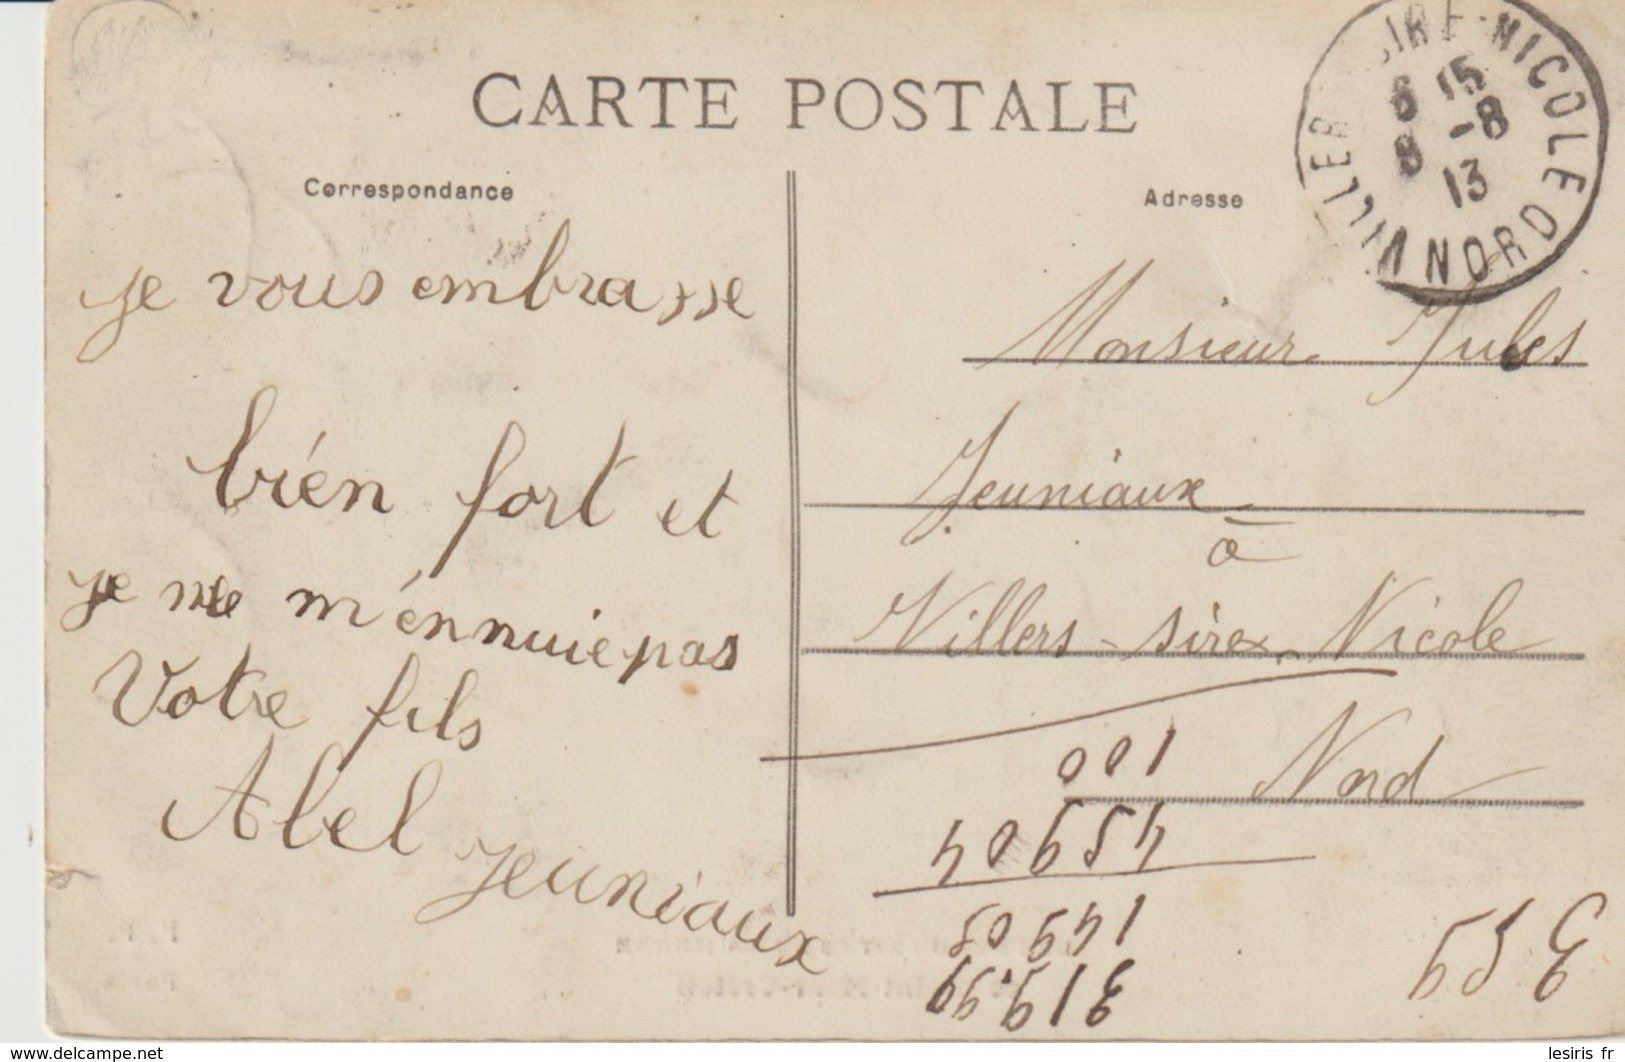 CARTE POSTALE
Correspondance
Adresse
NICOLE NORD
15
-8
13
je vous embrasse
bién fort et
je ne m'énnuie pas
Votre fils
Abel Jeuniaux
Monsieur Jules
Jeuniaux
à
Villers-sire-Nicole
Nord
100
www.delcampe.net
lesiris fr